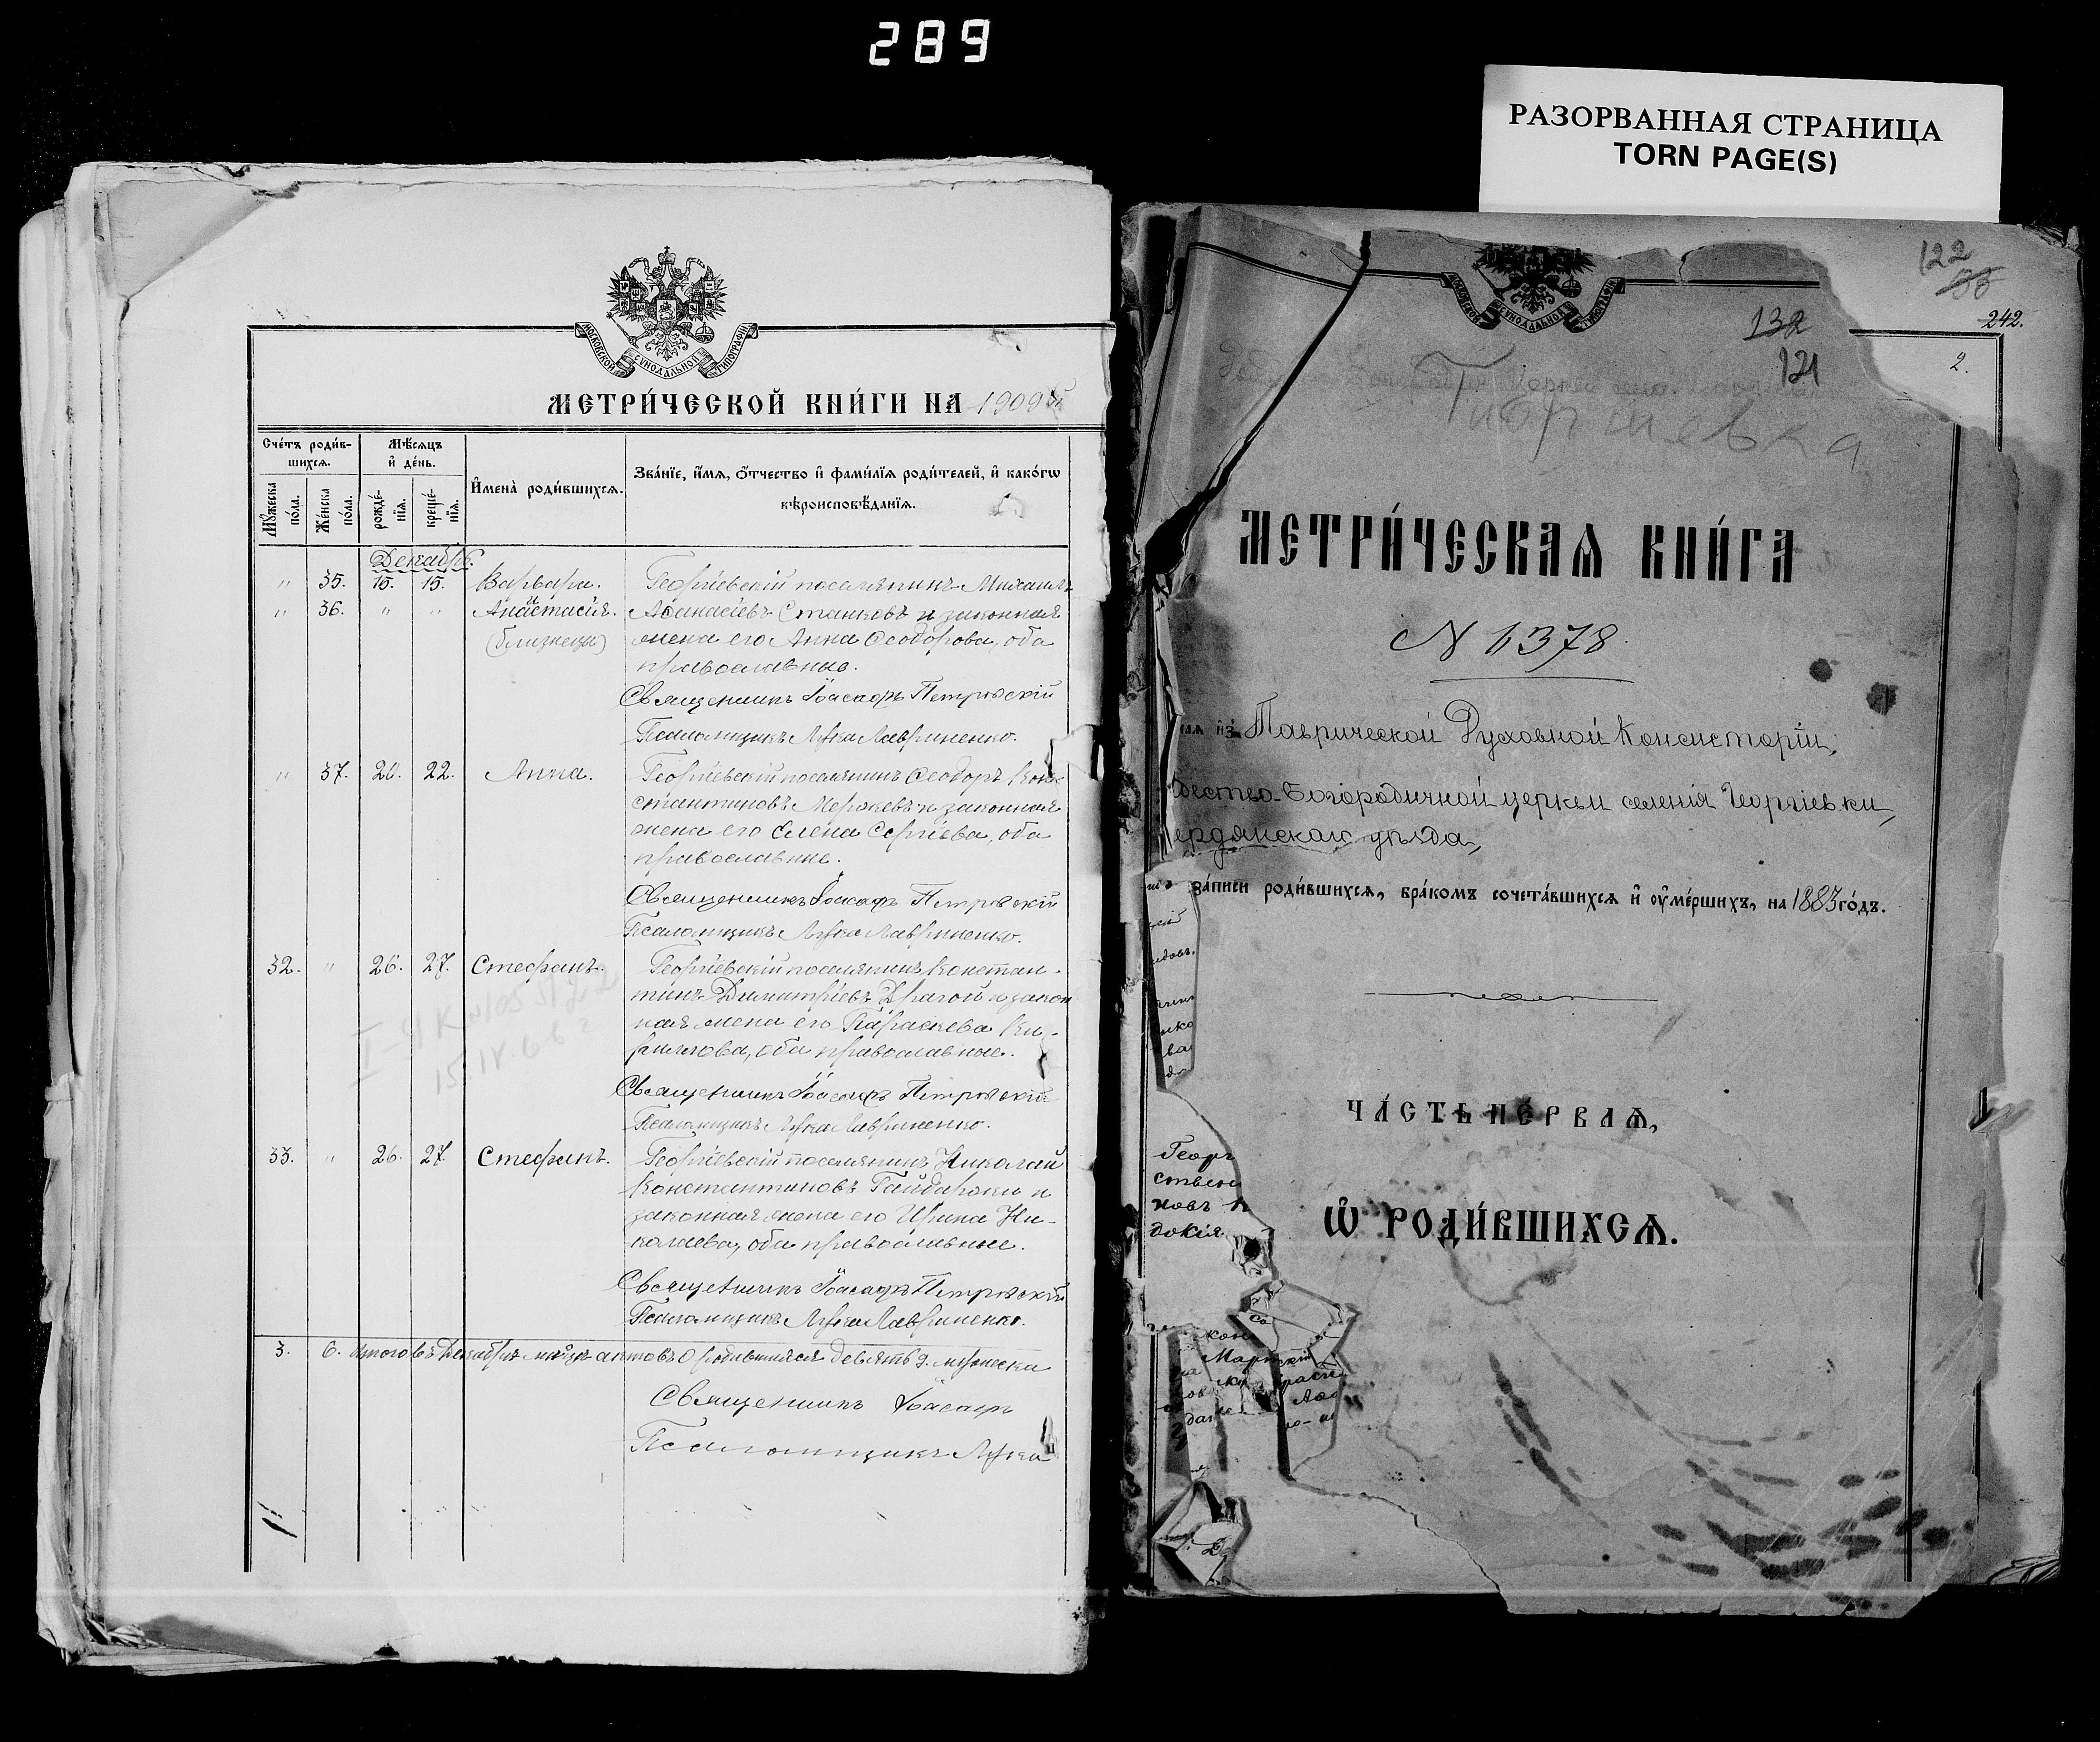 289
РАЗОРВАННАЯ СТРАНИЦА
TORN PAGE(S)
МОСКОВСКОЙ СѴНОДАЛЬНОЙ ТИПОГРАФІИ
МЕТРИ́ЧЕСКОЙ КНИ́ГИ НА 1909й
Сче́тъ роди́в-
шихсѧ.
Мѣ́сѧцъ
и҆ де́нь.
И҆мена̀ роди́вшихсѧ.
Зва́нїе, и҆́мѧ, ѻ҆́тчество и҆ фами́лїѧ роди́телей, и҆ како́гѡ
вѣроисповѣ́данїѧ.
Мꙋ́жеска
по́ла.
Же́нска
по́ла.
рожде́-
нїѧ.
креще́-
нїѧ.
Декабрь.
" 35. 15. 15. Варвара. Георгіевскій поселянинъ Михаилъ
и
" 36. " " Анастасія. Аѳанасіевъ Станковъ и законная
(близнецы) жена его Анна Ѳеодорова, оба
православные.
Священникъ Іоасафъ Петровскій
Псаломщикъ Лука Лавриненко.
" 37. 20. 22. Анна. Георгіевскій поселянинъ Ѳеодоръ Кон-
стантиновъ Мержевъ и законная
жена его Елена Сергіева, оба
православные.
Священникъ Іоасафъ Петровскій
Псаломщикъ Лука Лавриненко.
32. " 26. 27. Стефанъ. Георгіевскій поселянинъ Констан-
тинъ Димитріевъ Драгой и закон
ная жена его Параскева Ки-
риллова, оба православные.
Священникъ Іоасафъ Петровскій
Псаломщикъ Лука Лавриненко.
33. " 26. 27. Стефанъ. Георгіевскій поселянинъ Николай
Константиновъ Гайдаржи и
законная жена его Ирина Ни-
колаева, оба православные.
Священникъ Іоасафъ Петровскій
Псаломщикъ Лука Лавриненко.
3. 6. Итого въ Декабрѣ мѣсяцѣ актовъ о родившихся девять 9. мужеска
Священникъ Іоасафъ
Псаломщикъ Лука
15. IV. 66
122
242.
132
121
2.
МОСКОВСКОЙ СѴНОДАЛЬНОЙ ТИПОГРАФІИ
Георгиевка
МЕТРИ́ЧЕСКАѦ КНИ́ГА
N 11378
наѧ из Таврической Духовной Консисторіи,
дество-Богородичной церкви селенія Георгіевки,
ердянскаго уѣзда,
за́писи роди́вшихсѧ, бра́комъ сочета́вшихсѧ и҆ ᲂу҆ме́ршихъ, на 1883 го́дъ.
ЧА́СТЬ ПЕ́РВАѦ,
Ѡ҆ РОДИ́ВШИХСѦ.
Георг
ствен
новъ
докія